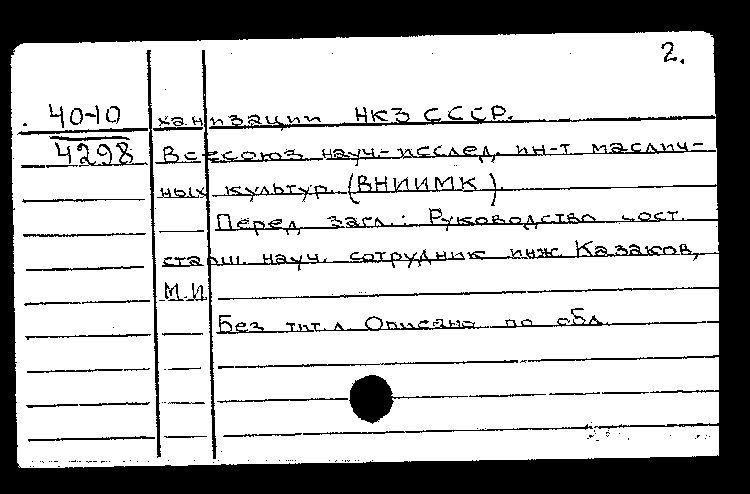 2.
40-10 ханизации НКЗ СССР.
4298 Всесоюз. науч-исслед. ин-т маслич-
ных культур. (ВНИИМК).
Перед загл.: Руководство сост.
старш. науч. сотрудник инж. Казаков,
М.И
Без тит. л. Описано по обл.